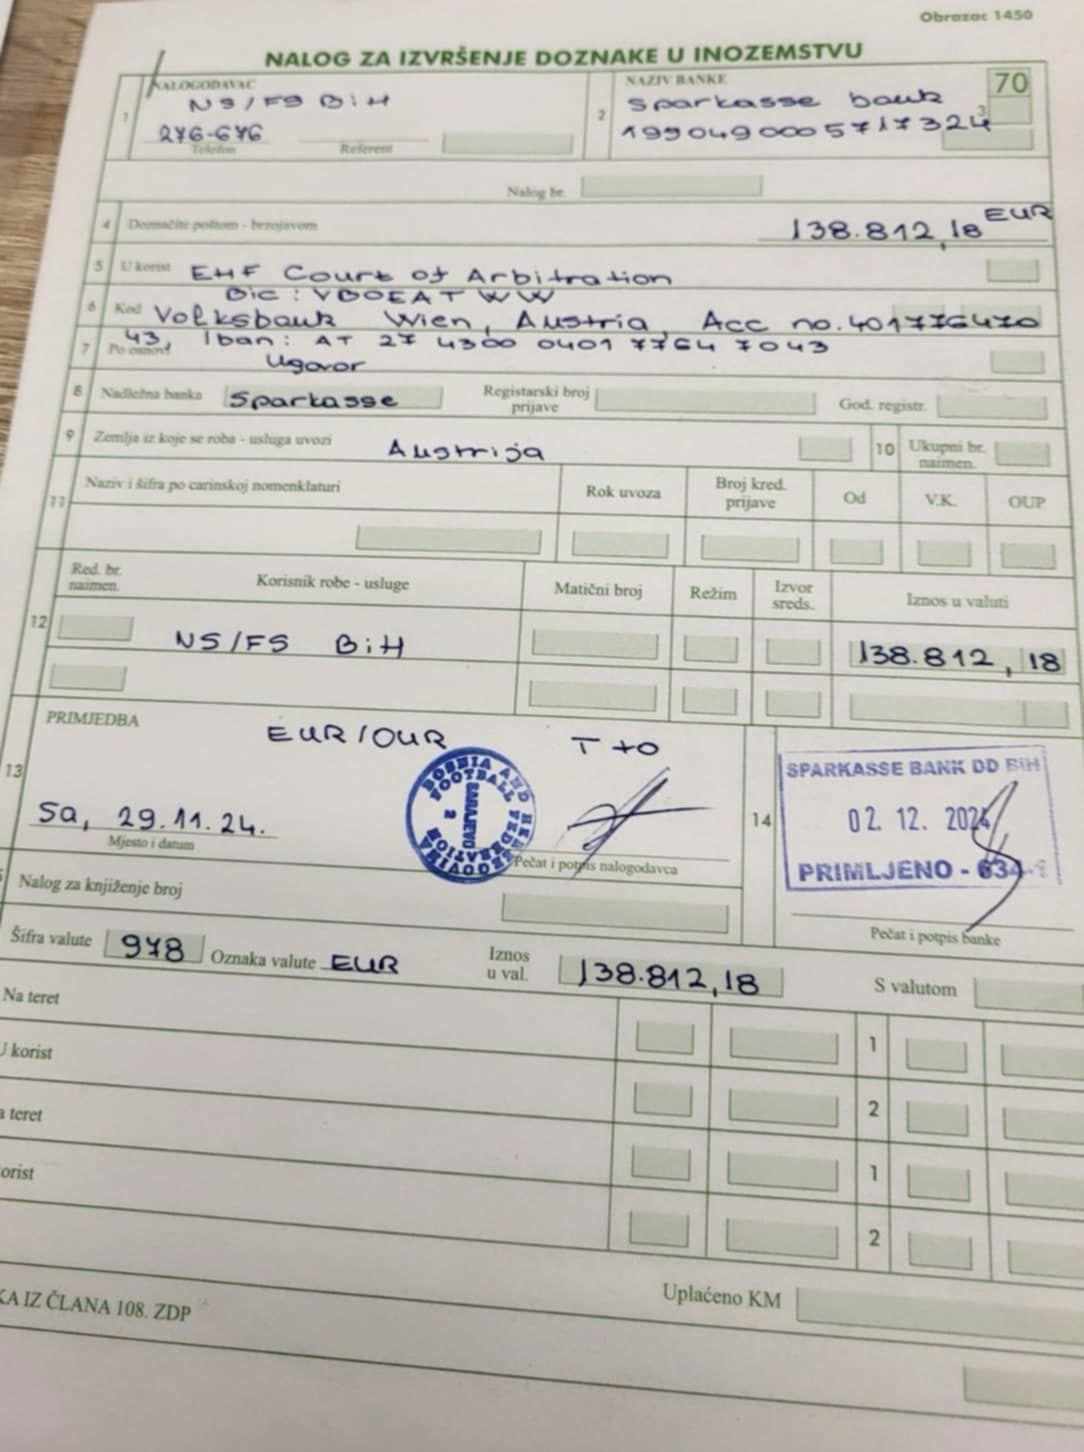 Obrazac 1450
NALOG ZA IZVRŠENJE DOZNAKE U INOZEMSTVU
NALOGODAVAC
1
NS/FS BiH
276-676
Telefon
Referent
NAZIV BANKE
70
2
Sparkasse bank
3
1990490005717324
Nalog br.
4
Doznačite poštom - brzojavom
138.812,18 EUR
5
U korist
EHF Court of Arbitration
Bic: VBOEATWW
6
Kod
Volksbank Wien, Austria, Acc no. 401776470
43, Iban: AT 27 4300 0401 7764 7043
7
Po osnovi
Ugovor
8
Nadležna banka
Sparkasse
Registarski broj prijave
God. registr.
9
Zemlja iz koje se roba - usluga uvozi
Austrija
10
Ukupni br. naimen.
11
Naziv i šifra po carinskoj nomenklaturi
Rok uvoza
Broj kred. prijave
Od
V.K.
OUP
12
Red. br. naimen.
Korisnik robe - usluge
Matični broj
Režim
Izvor sreds.
Iznos u valuti
NS/FS BiH
138.812,18
13
PRIMJEDBA
EUR/OUR
T+0
Sa, 29.11.24.
Mjesto i datum
BOSNIA AND HERZEGOVINA
FOOTBALL FEDERATION
SARAJEVO
2
Pečat i potpis nalogodavca
14
SPARKASSE BANK DD BiH
02. 12. 2024
PRIMLJENO - 634
Pečat i potpis banke
Nalog za knjiženje broj
Šifra valute 978 Oznaka valute EUR
Iznos u val. 138.812,18
S valutom
Na teret
1
U korist
2
a teret
1
orist
2
KA IZ ČLANA 108. ZDP
Uplaćeno KM